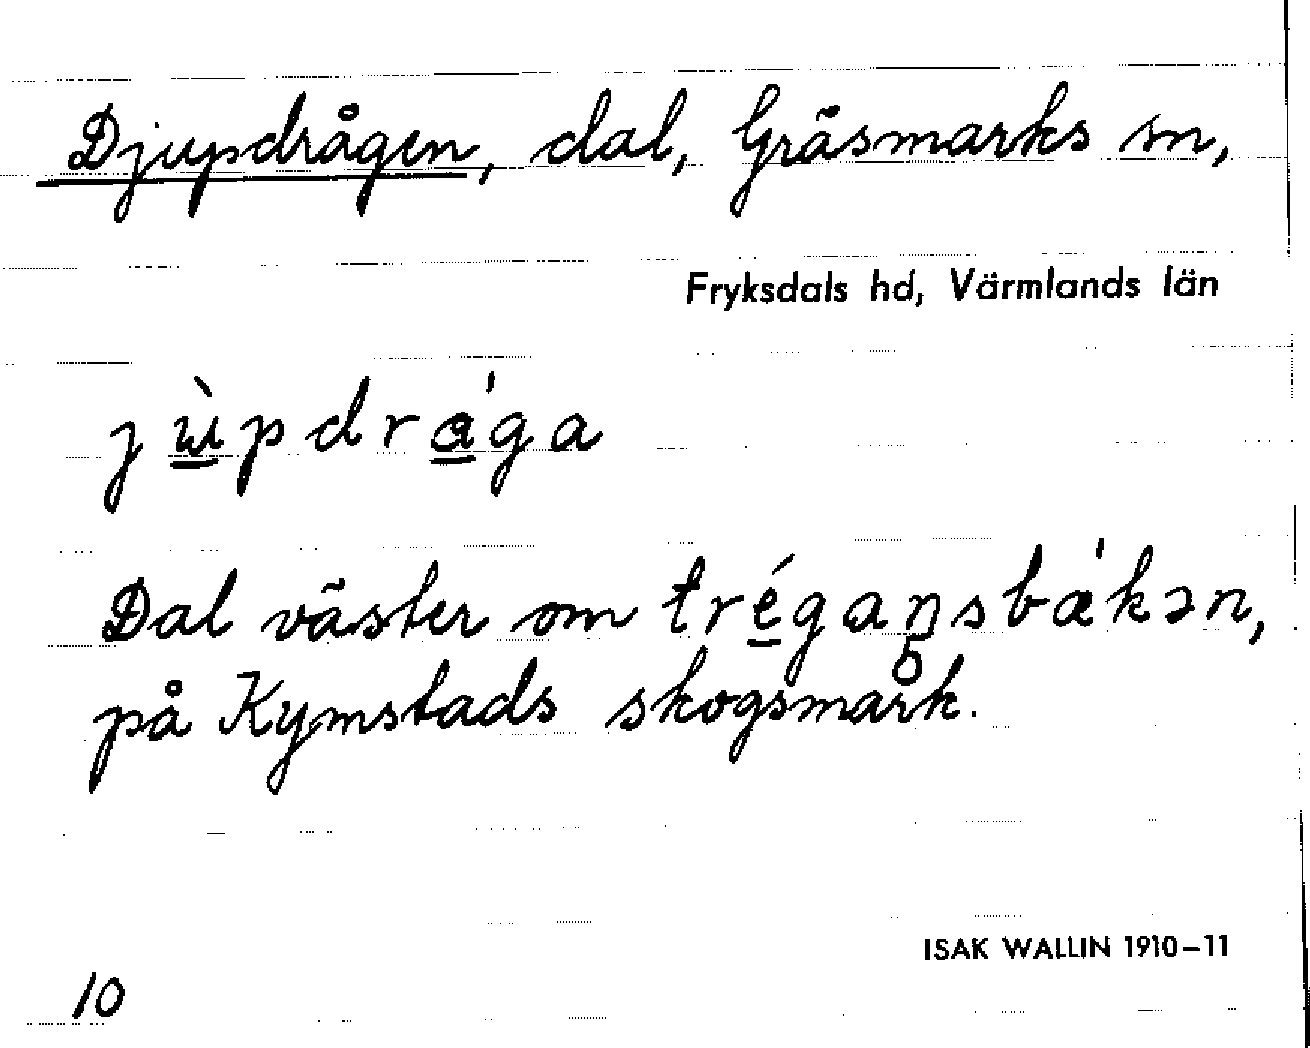 Djupdrågen, dal, Gräsmarks sn,
Fryksdals hd, Värmlands län
jùpdrága
Dal väster om trégaŋsbǽkən,
på Kymstads skogsmark.
ISAK WALLIN 1910–11
10